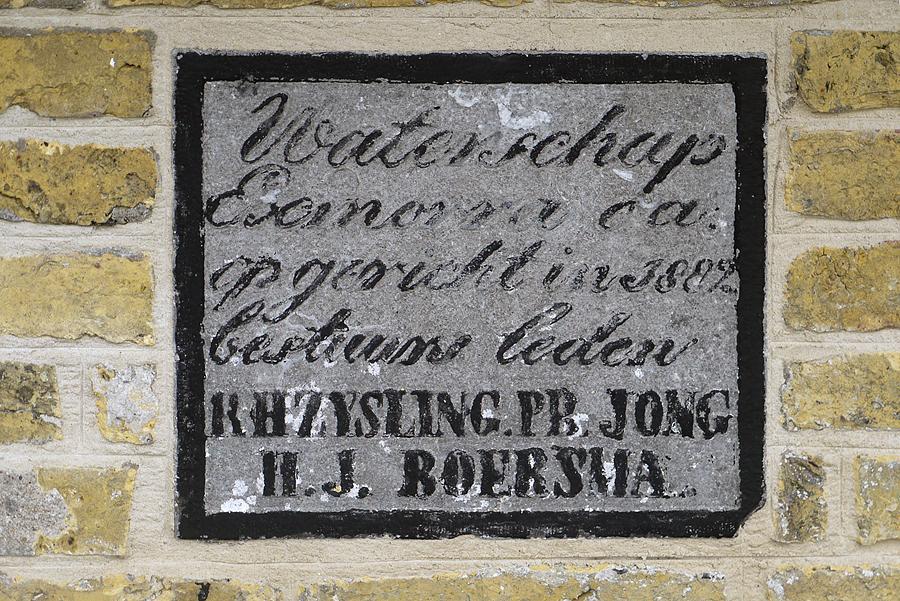 Waterschap
Esmorra ca:
opgericht in 1882
bestuurs leden
R.H.ZYSLING. P.B. JONG
H. J. BOERSMA